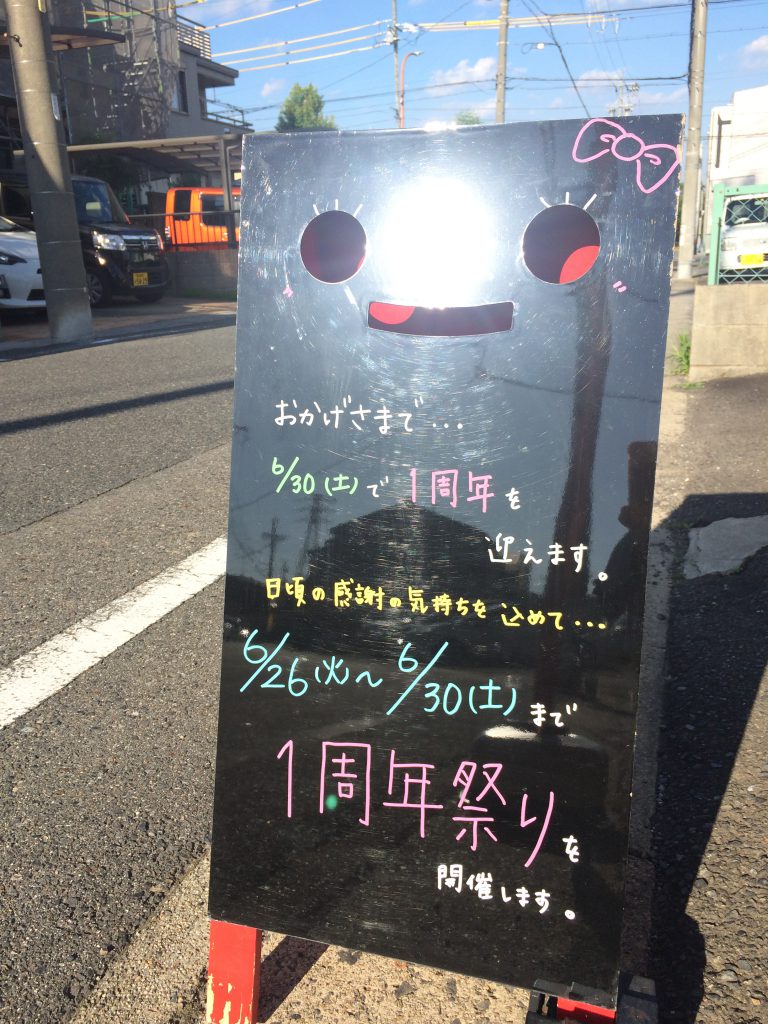 おかげさまで...
6/30(土)で 1周年を
迎えます。
日頃の感謝の気持ちを込めて...
6/26(火)~6/30(土)まで
1周年祭りを
開催します。